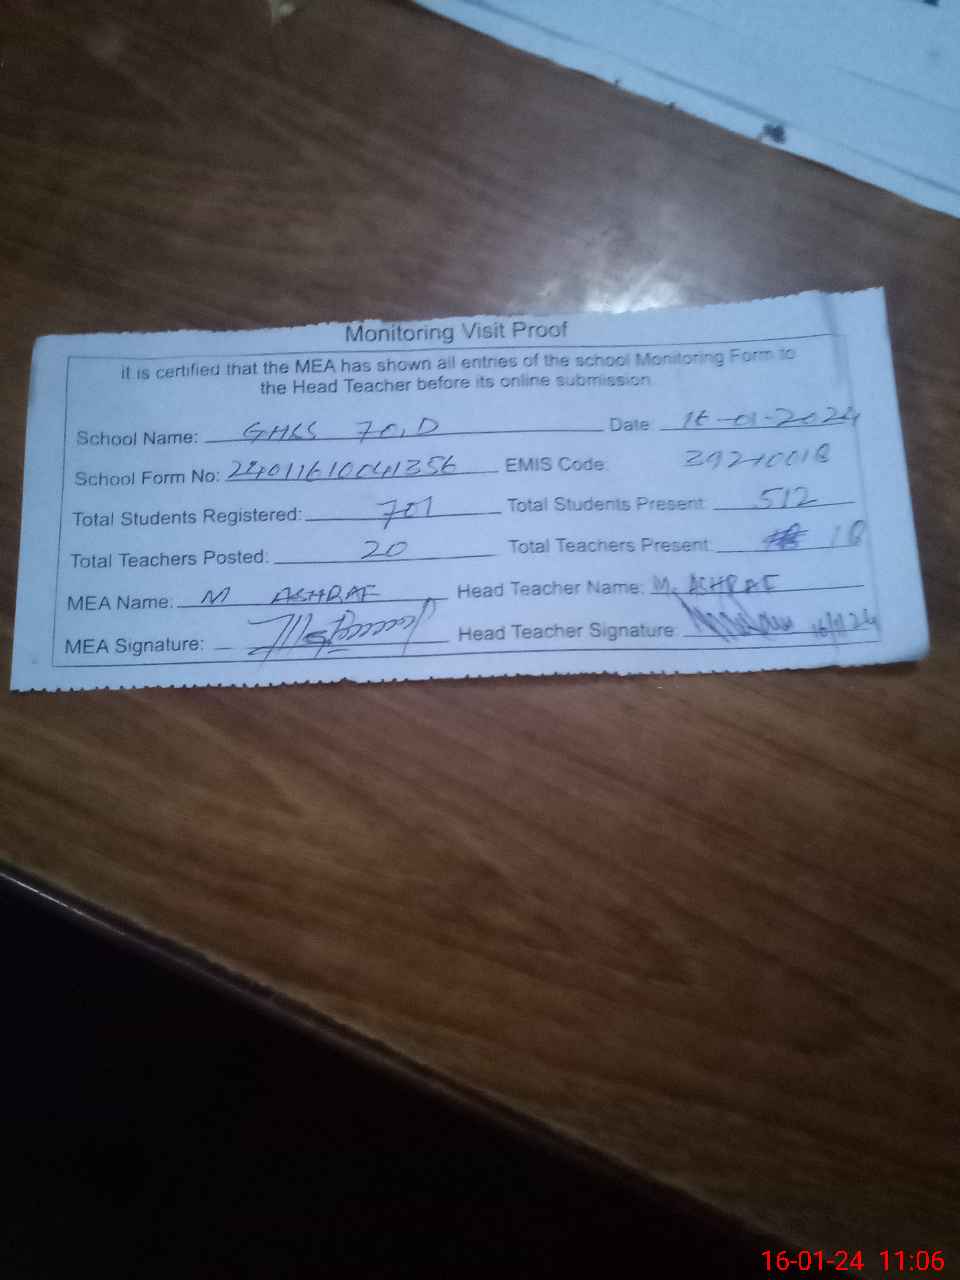 Monitoring Visit Proof
it is certified that the MEA has shown all entries of the school Monitoring Form to
the Head Teacher before its online submission.
School Name: GHSS 70,D Date: 16-01-2024
School Form No: 24011610041356 EMIS Code: 39210018
Total Students Registered: 701 Total Students Present: 512
Total Teachers Posted: 20 Total Teachers Present: 18
MEA Name: M ASHRAF Head Teacher Name: M. ASHRAF
MEA Signature: Head Teacher Signature: 16/1/24
16-01-24 11:06